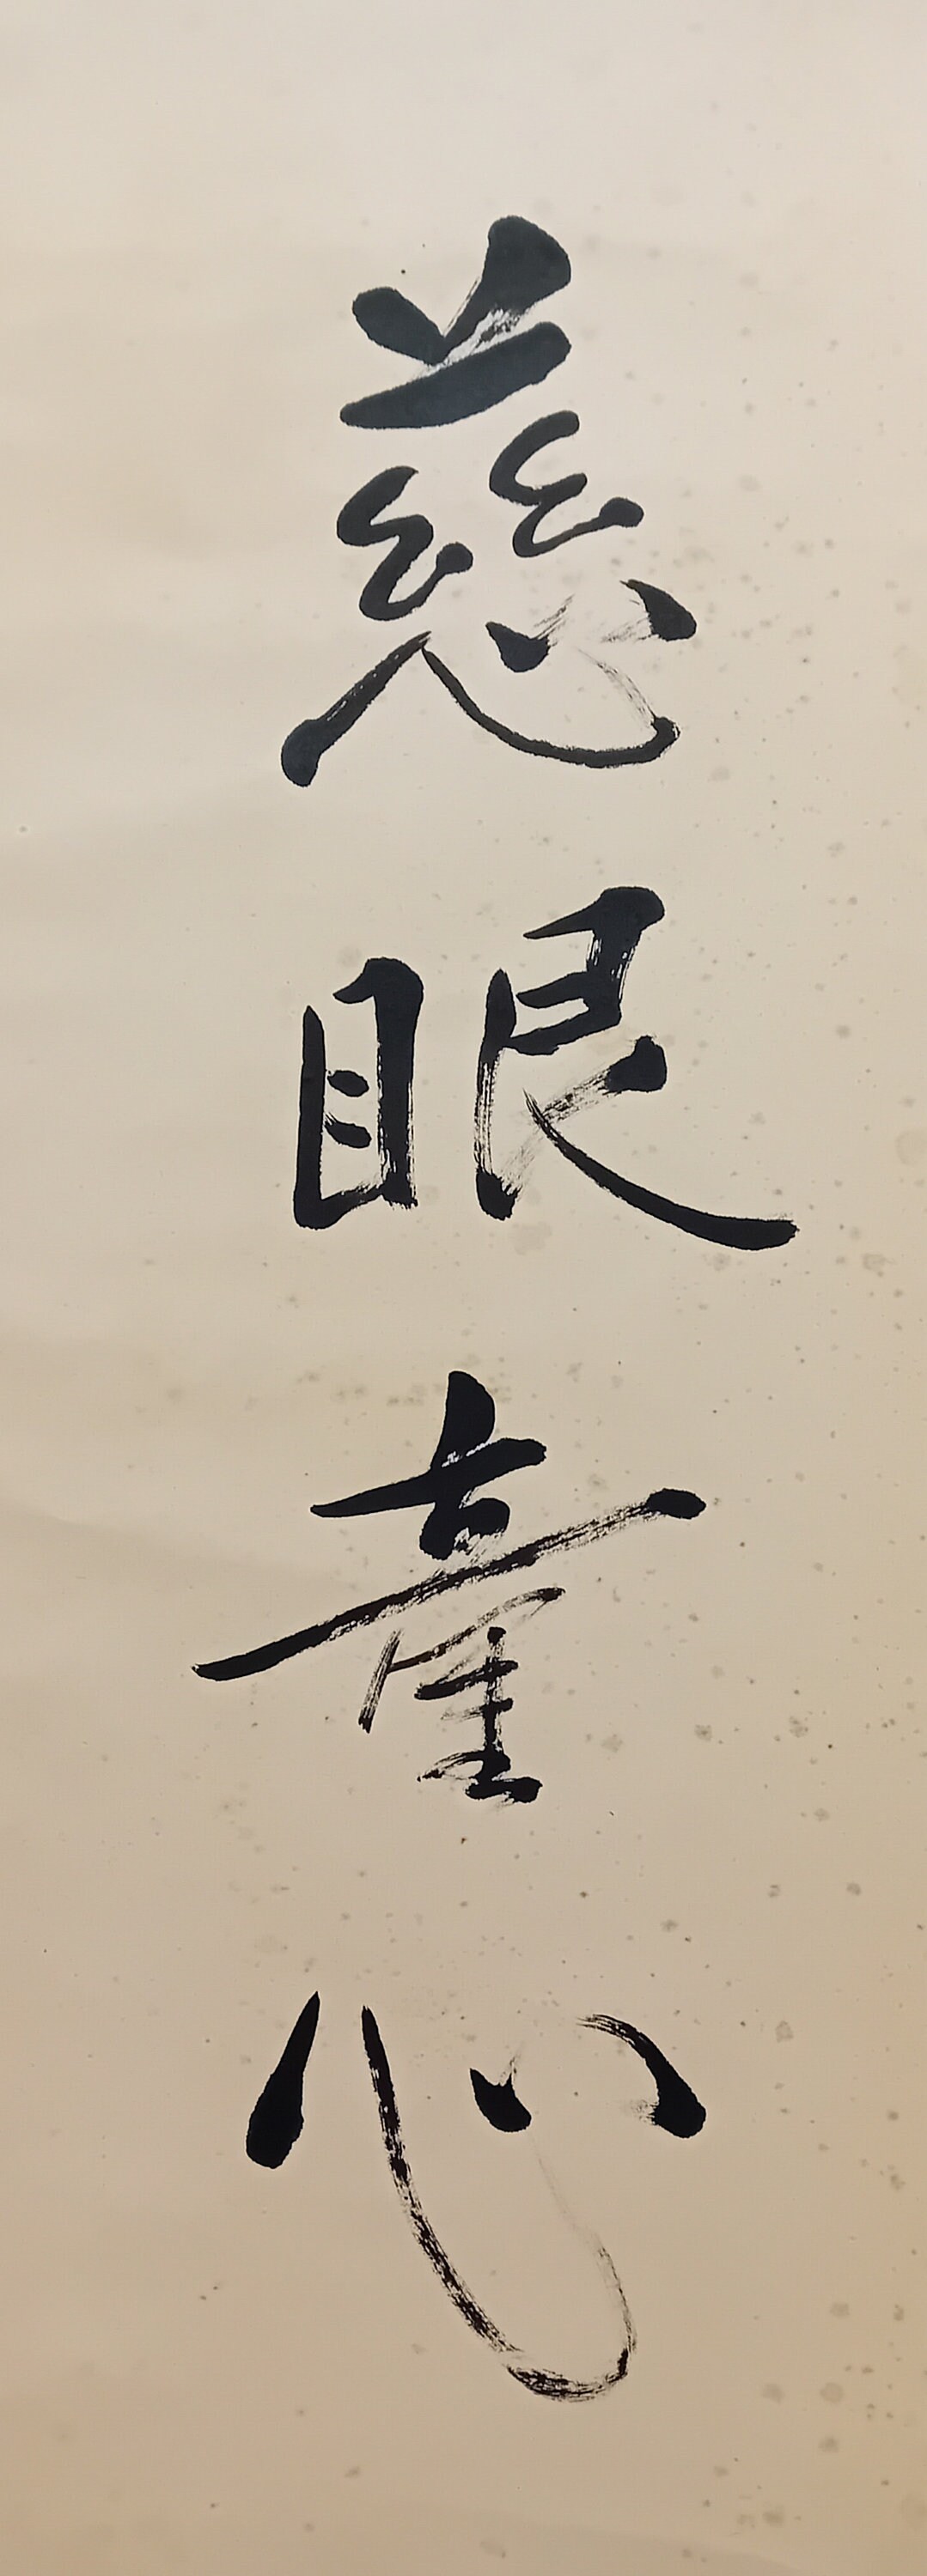 慈眼童心